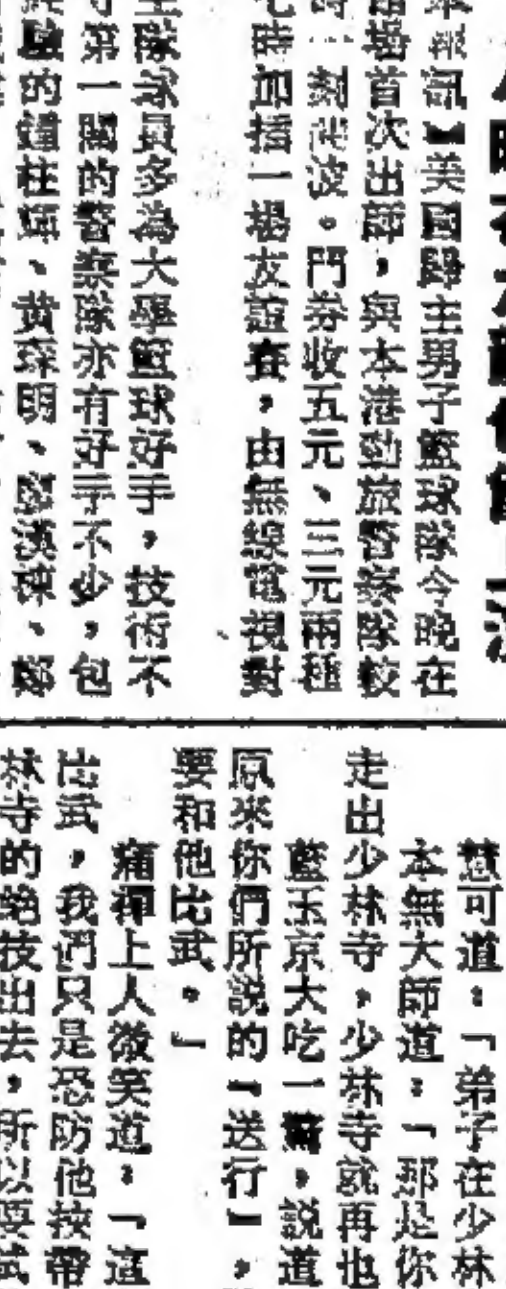 報訊】美國歸主男子籃球隊今晚在
首次出師,與本港勁旅警察隊較
一刻開波。門券收五元、三元兩種
七時加插一場友誼賽,由無線電視對
主隊球員多為大學籃球好手,技術不
第一關的警察隊亦有好手不少,包
的鍾柱輝、黄琛明、廖漢棟、鄭
慧可道:「弟子在少林
本無大師道:「那是你
走出少林寺,少林寺就再也
藍玉京大吃一驚,説道
原來你們所説的「送行」,
要和他比武。」
痛禪上人微笑道:「這
比武,我們只是恐防他按帶
林寺的絶技出去,所以要試